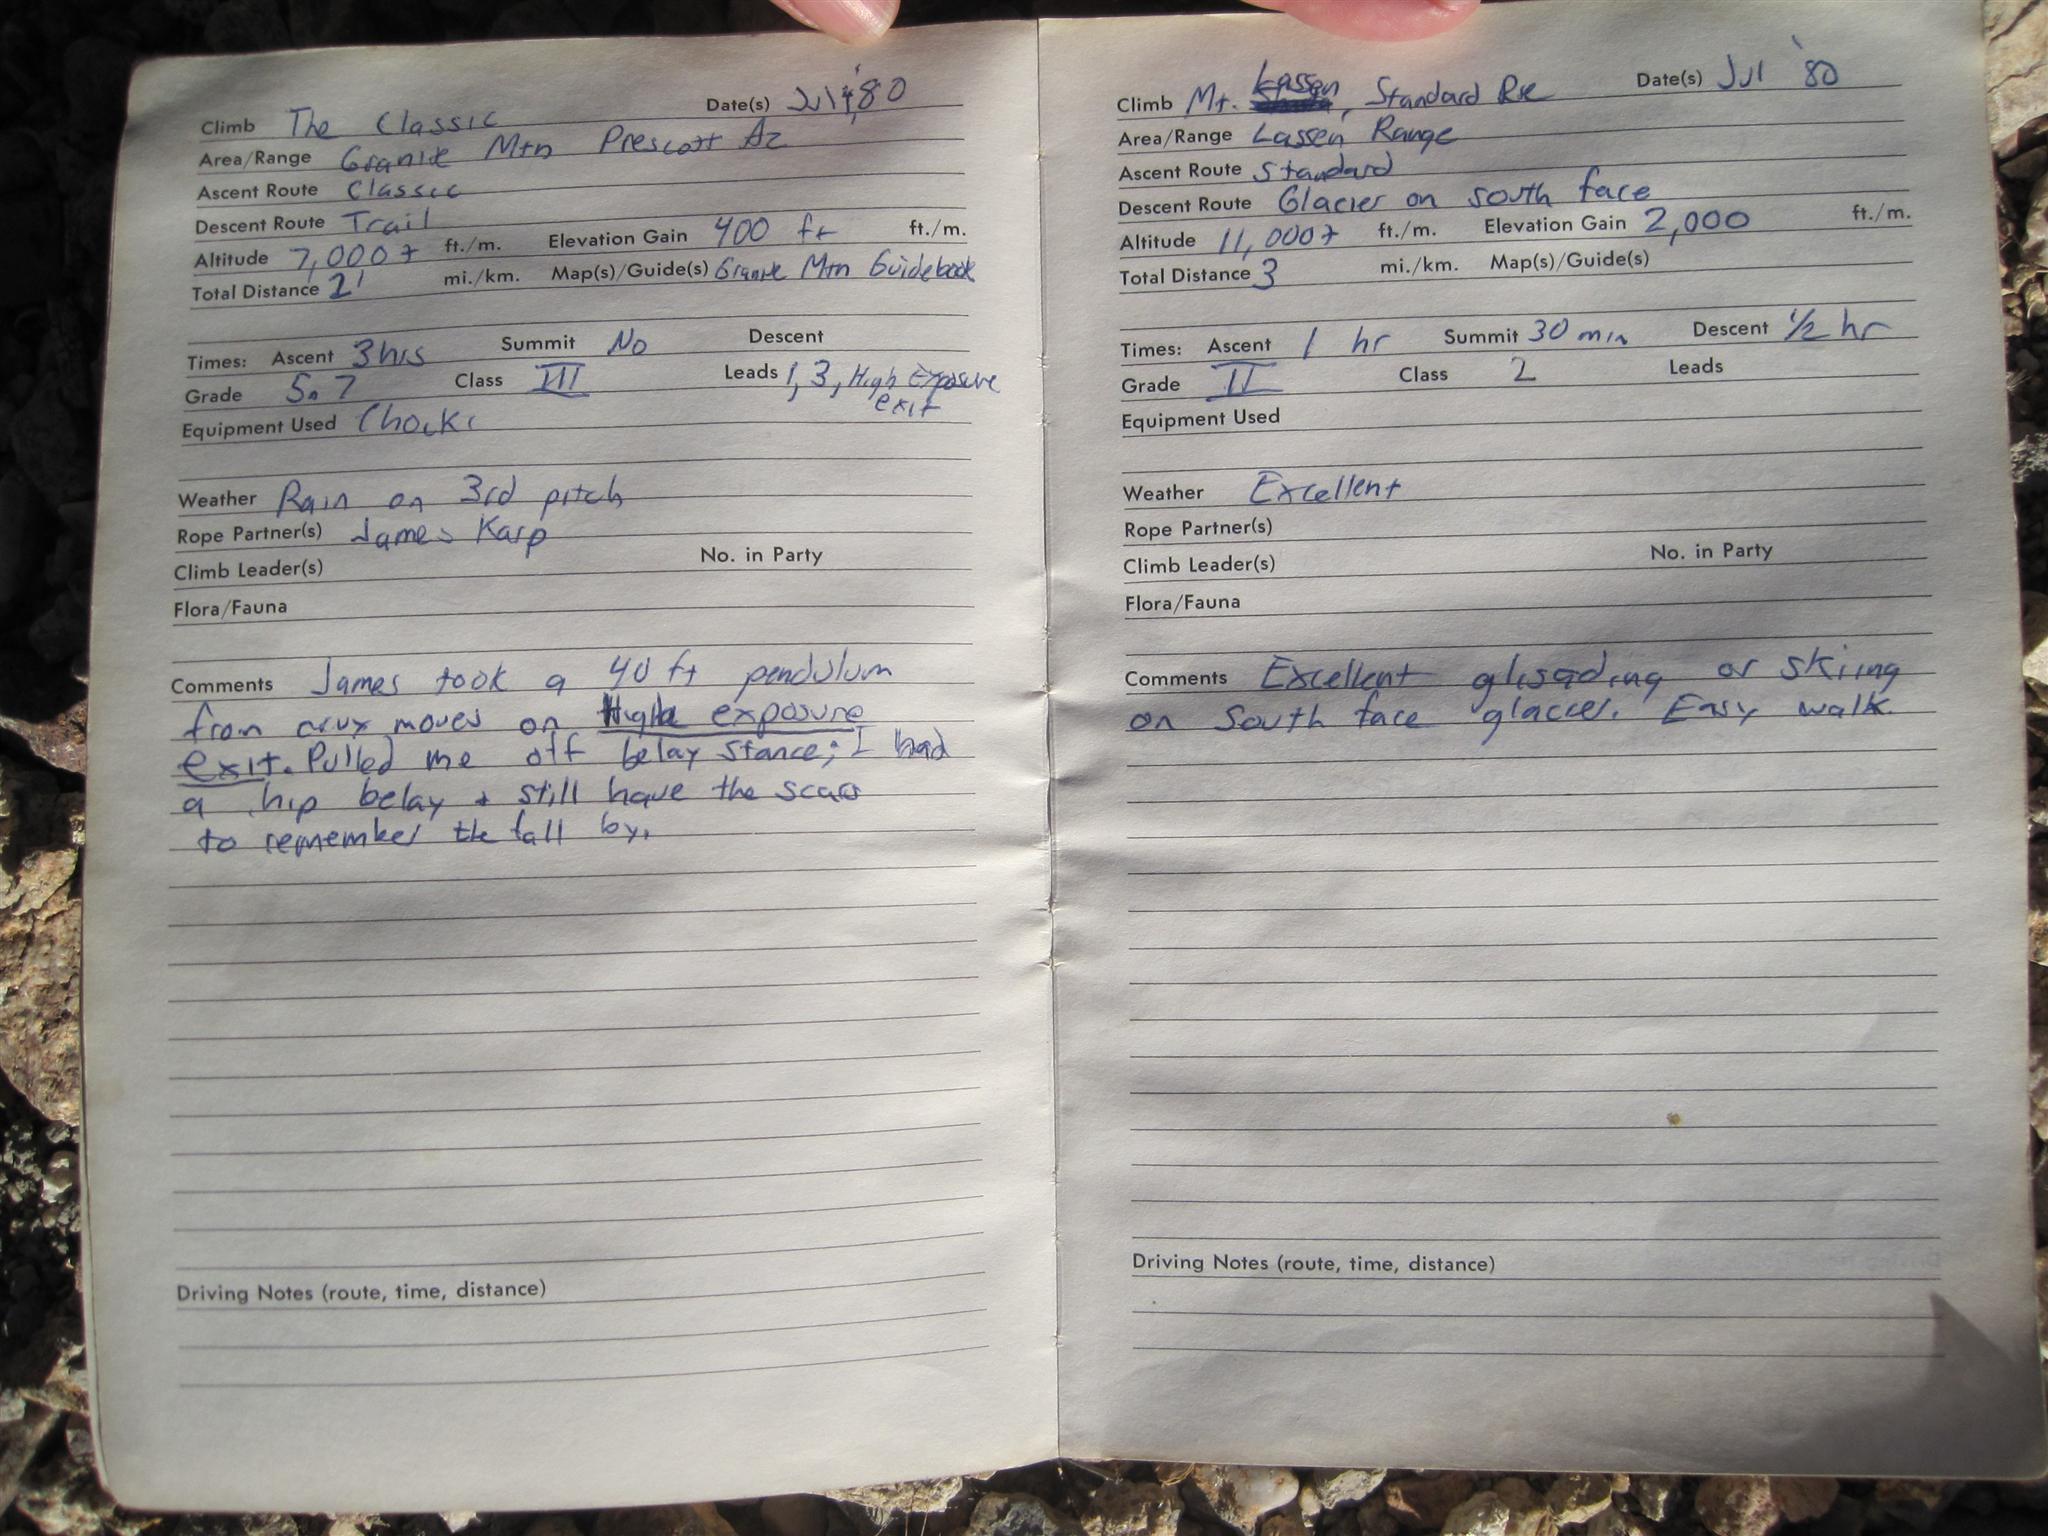 Climb The Classic Date(s) Jul '80
Area/Range Granite Mtn Prescott Az
Ascent Route Classic
Descent Route Trail
Altitude 7,000 + ft./m. Elevation Gain 400 ft ft./m.
Total Distance 2' mi./km. Map(s)/Guide(s) Granite Mtn Guidebook
Times: Ascent 3 hrs Summit No Descent
Grade 5.7 Class III Leads 1, 3, High Exposure
exit
Equipment Used Chocks
Weather Rain on 3rd pitch
Rope Partner(s) James Karp
Climb Leader(s) No. in Party
Flora/Fauna
Comments James took a 40 ft pendulum
from crux moves on High exposure
exit. Pulled me off belay stance; I had
a hip belay + still have the scars
to remember the fall by.
Driving Notes (route, time, distance)
Climb Mt. Lassen, Standard Rte Date(s) Jul '80
Area/Range Lassen Range
Ascent Route Standard
Descent Route Glacier on south face
Altitude 11,000 + ft./m. Elevation Gain 2,000 ft./m.
Total Distance 3 mi./km. Map(s)/Guide(s)
Times: Ascent 1 hr Summit 30 min Descent 1/2 hr
Grade II Class 2 Leads
Equipment Used
Weather Excellent
Rope Partner(s)
Climb Leader(s) No. in Party
Flora/Fauna
Comments Excellent glisading or skiing
on South face glacier. Easy walk.
Driving Notes (route, time, distance)